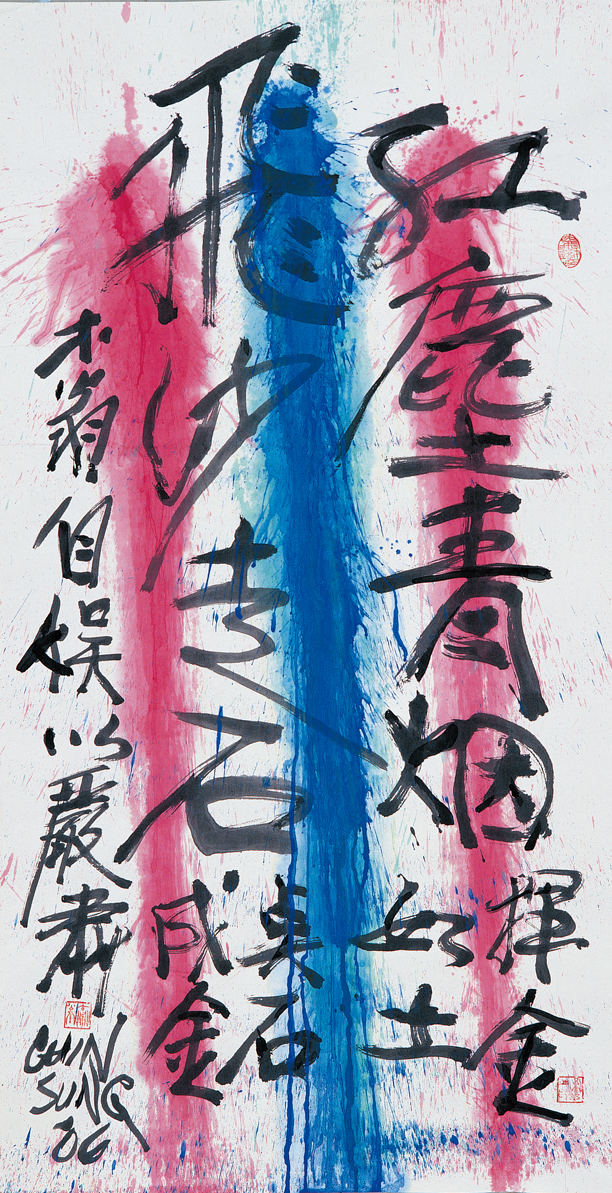 红塵青烟
揮金
如土
飛沙走石
奌石
成金
木翁自娱以嚴肅
CHIN
SUNG
06